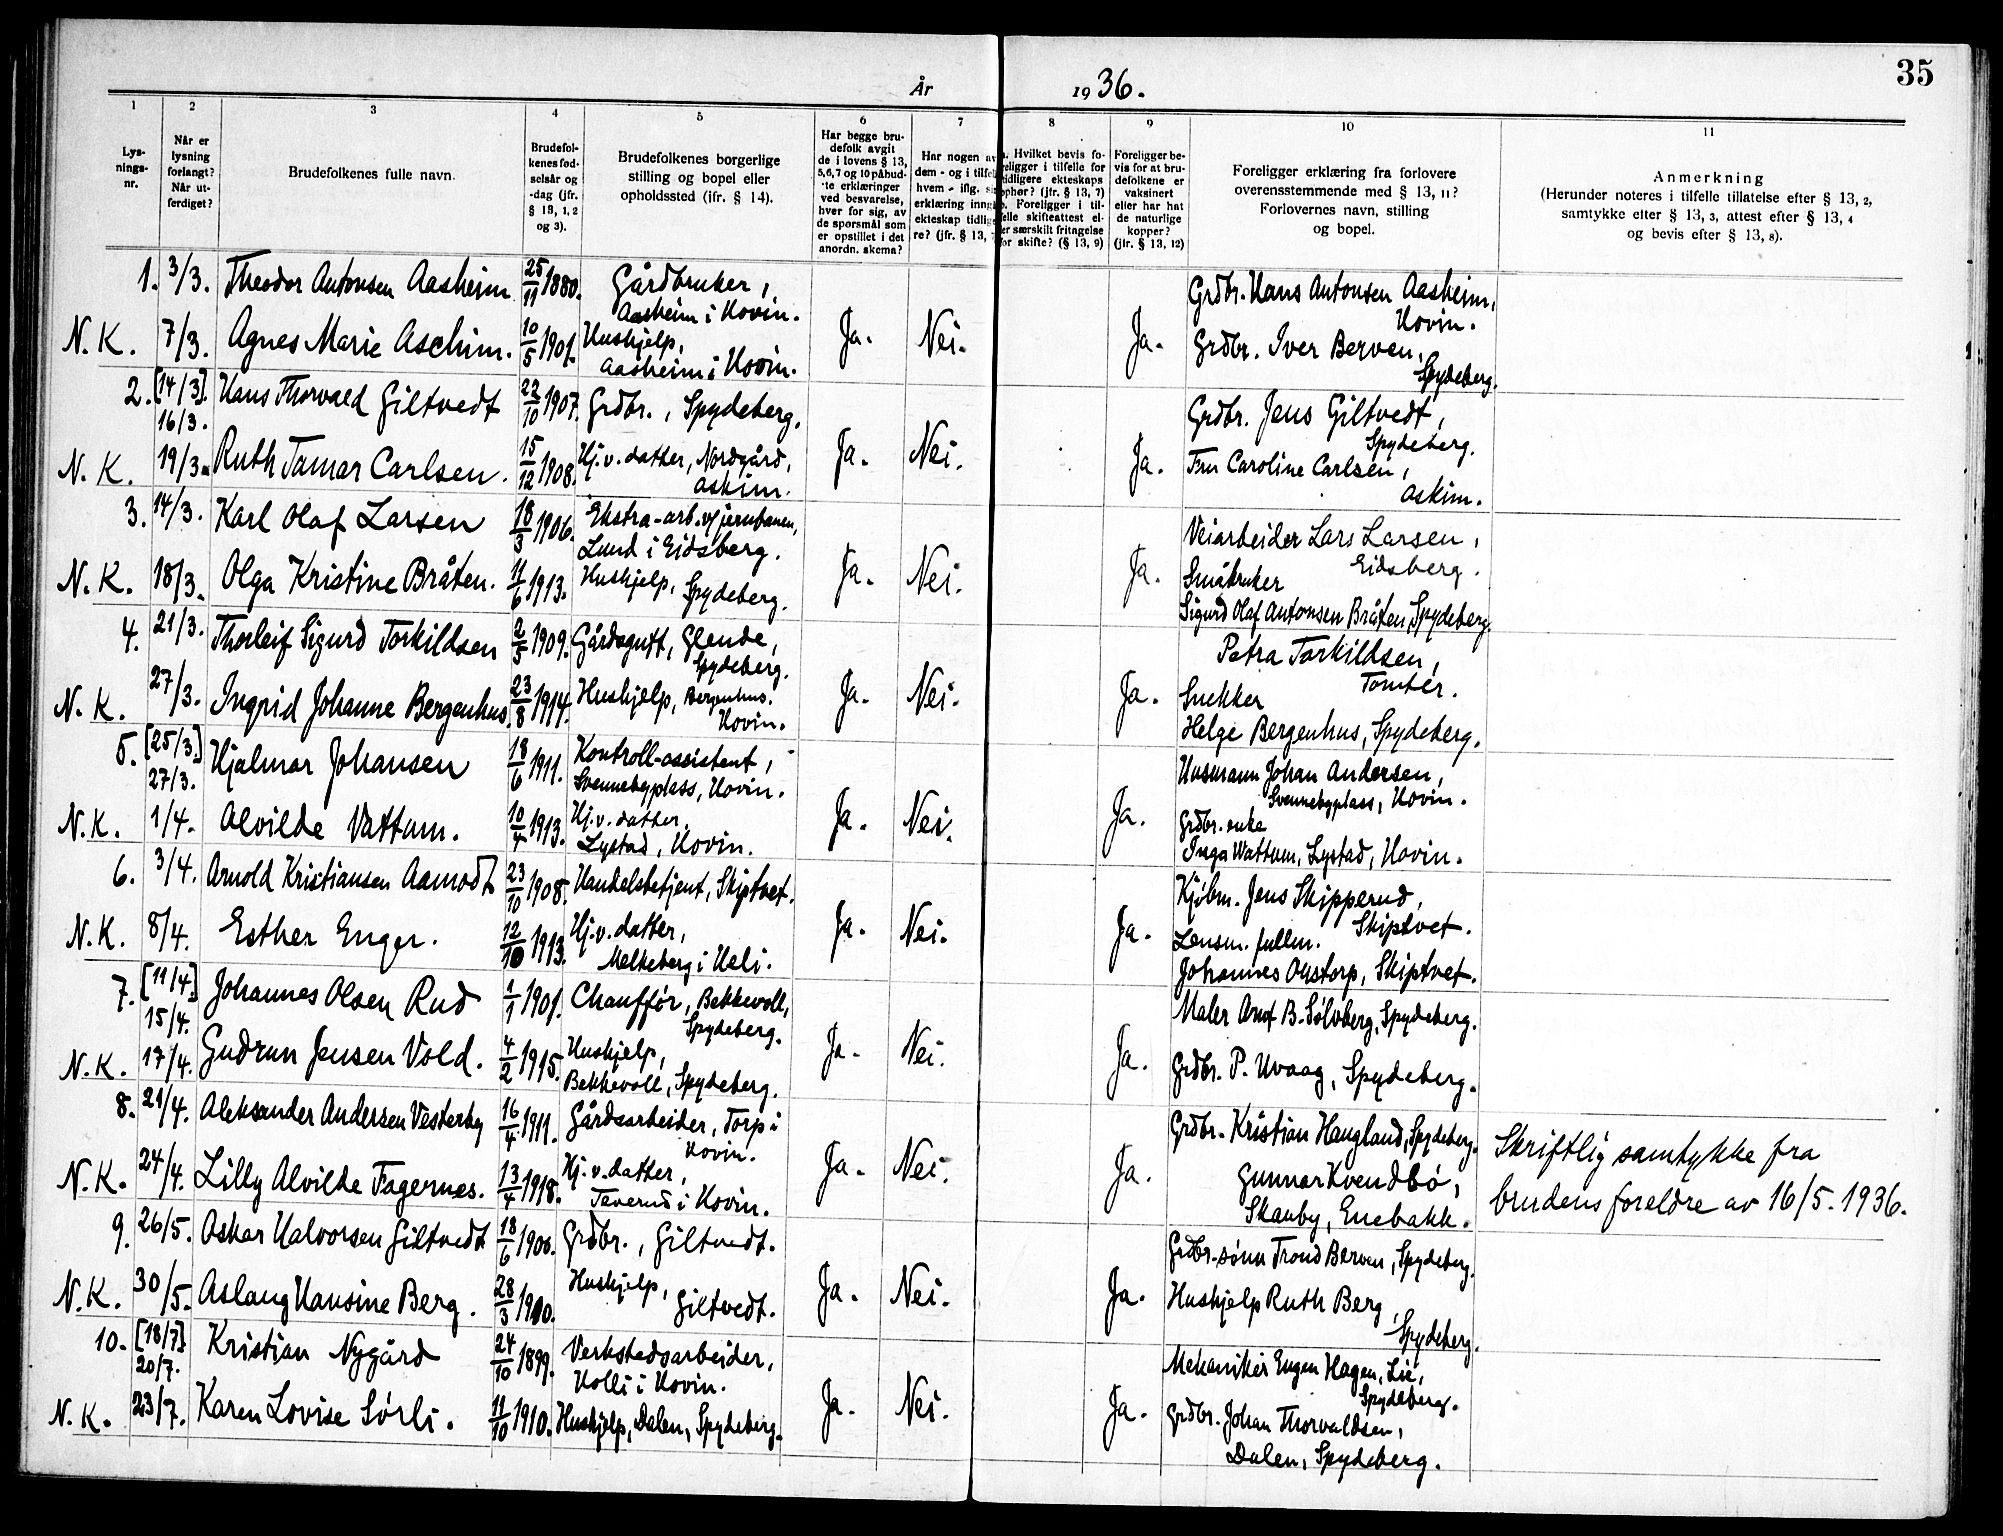 35
År 1936.
1 2 3 4 5 6 7 8 9 10 11
Lys-
nings-
nr.
Når er
lysning
forlangt?
Når ut-
ferdiget?
Brudefolkenes fulle navn.
Brudefol-
kenes fød-
selsår og
-dag (jfr.
§ 13, 1, 2
og 3).
Brudefolkenes borgerlige
stilling og bopel eller
opholdssted (jfr. § 14).
Har begge bru-
defolk avgit
de i lovens § 13,
5, 6, 7 og 10 påbud-
te erklæringer
ved besvarelse,
hver for sig, av
de spørsmål som
er opstillet i det
anordn. skema?
Har nogen av
dem - og i tilfel
hvem - iflg. si
erklæring inng
ekteskap tidlig
re? (jfr. § 13, 7
Hvilket bevis fo-
religger i tilfelle for
tidligere ekteskaps
ophør? (jfr. § 13, 7)
Foreligger i til-
felle skifteattest el-
er særskilt fritagelse
for skifte? (§ 13, 9)
Foreligger be-
vis for at bru-
defolkene er
vaksinert
eller har hat
de naturlige
kopper?
(jfr. § 13, 12)
Foreligger erklæring fra forlovere
overensstemmende med § 13, 11?
Forlovernes navn, stilling
og bopel.
Anmerkning
(Herunder noteres i tilfelle tillatelse efter § 13, 2,
samtykke efter § 13, 3, attest efter § 13, 4
og bevis efter § 13, 8).
1. 3/3. Theodor Antonsen Aasheim 25/11 1880. Gårdbruker,
Aasheim i Hovin.
Grdbr. Hans Antonsen Aasheim,
Hovin.
N. K. 7/3. Agnes Marie Aschim. 10/5 1901. Hushjelp,
Aasheim i Hovin.
Ja. Nei. Ja. Grdbr. Iver Berven,
Spydeberg.
2. [14/3]. 16/3. Hans Thorvald Giltvedt 22/10 1907. Grdbr., Spydeberg.
Grdbr. Jens Giltvedt,
Spydeberg.
N. K. 19/3. Ruth Tamar Carlsen. 15/12 1908. Hj.v. datter, Nordgård,
Askim.
Ja. Nei. Ja. Fru Caroline Carlsen,
Askim.
3. 14/3. Karl Olaf Larsen 18/3 1906. Ekstra-arb. v/jernbanen,
Lund i Eidsberg.
Veiarbeider Lars Larsen,
Eidsberg.
N. K. 18/3. Olga Kristine Bråten. 11/6 1913. Hushjelp, Spydeberg.
Ja. Nei. Ja. Småbruker
Sigurd Olaf Antonsen Bråten, Spydeberg.
4. 21/3. Thorleif Sigurd Torkildsen 2/3 1909. Gårdsgutt, Glende,
Spydeberg.
Petra Torkildsen,
Tomter.
N. K. 27/3. Ingrid Johanne Bergenhus. 23/8 1914. Hushjelp, Bergenhus.
Hovin.
Ja. Nei. Ja. Snekker
Helge Bergenhus, Spydeberg.
5. [25/3.] 27/3. Hjalmar Johansen 18/6 1911. Kontroll-assistent,
Svennebyplass, Hovin.
Husmann Johan Andersen,
Svennebyplass, Hovin.
N. K. 1/4. Alvilde Vattum. 10/4 1913. Hj.v. datter,
Lystad, Hovin.
Ja. Nei. Ja. Grdbr. enke
Inga Wattum, Lystad, Hovin.
6. 3/4. Arnold Kristiansen Aamodt 23/10 1908. Handelsbetjent, Skiptvet.
Kjøbm. Jens Skipperud,
Skiptvet.
N. K. 8/4. Esther Enger. 12/10 1913. Hj.v. datter,
Melkeberg i Heli.
Ja. Nei. Ja. Lensm. fullm.
Johannes Oustorp, Skiptvet.
7. [11/4] 15/4. Johannes Olsen Rud 1/1 1901. Chauffør, Bekkevoll,
Spydeberg.
Maler Arnt B. Sølvberg, Spydeberg.
N. K. 17/4. Gudrun Jensen Vold. 4/2 1915. Hushjelp,
Bekkevoll, Spydeberg.
Ja. Nei. Ja. Grdbr. P. Hvaag, Spydeberg.
8. 21/4. Aleksander Andersen Vesterby 16/4 1911. Gårdsarbeider, Torp i
Hovin.
Grdbr. Kristian Haugland, Spydeberg.
N. K. 24/4. Lilly Alvilde Fagernes. 13/4 1918. Hj.v. datter,
Teverud i Hovin.
Ja. Nei. Ja. Gunnar Kvendbø,
Skauby, Enebakk.
Skriftlig samtykke fra
brudens foreldre av 16/5. 1936.
9. 26/5. Oskar Halvorsen Giltvedt 18/6 1900. Grdbr., Giltvedt.
Grdbr. sønn Trond Berven, Spydeberg.
N. K. 30/5. Aslaug Hansine Berg. 28/3 1900. Hushjelp,
Giltvedt.
Ja. Nei. Ja. Hushjelp Ruth Berg,
Spydeberg.
10. [18/7] 20/7. Kristian Nygård 24/10 1899. Verkstedsarbeider,
Holli i Hovin.
Mekaniker Eugen Hagen, Lie,
Spydeberg.
N. K. 23/7. Karen Lovise Sørli. 11/10 1910. Hushjelp, Dalen, Spydeberg.
Ja. Nei. Ja. Grdbr. Johan Thorvaldsen,
Dalen, Spydeberg.